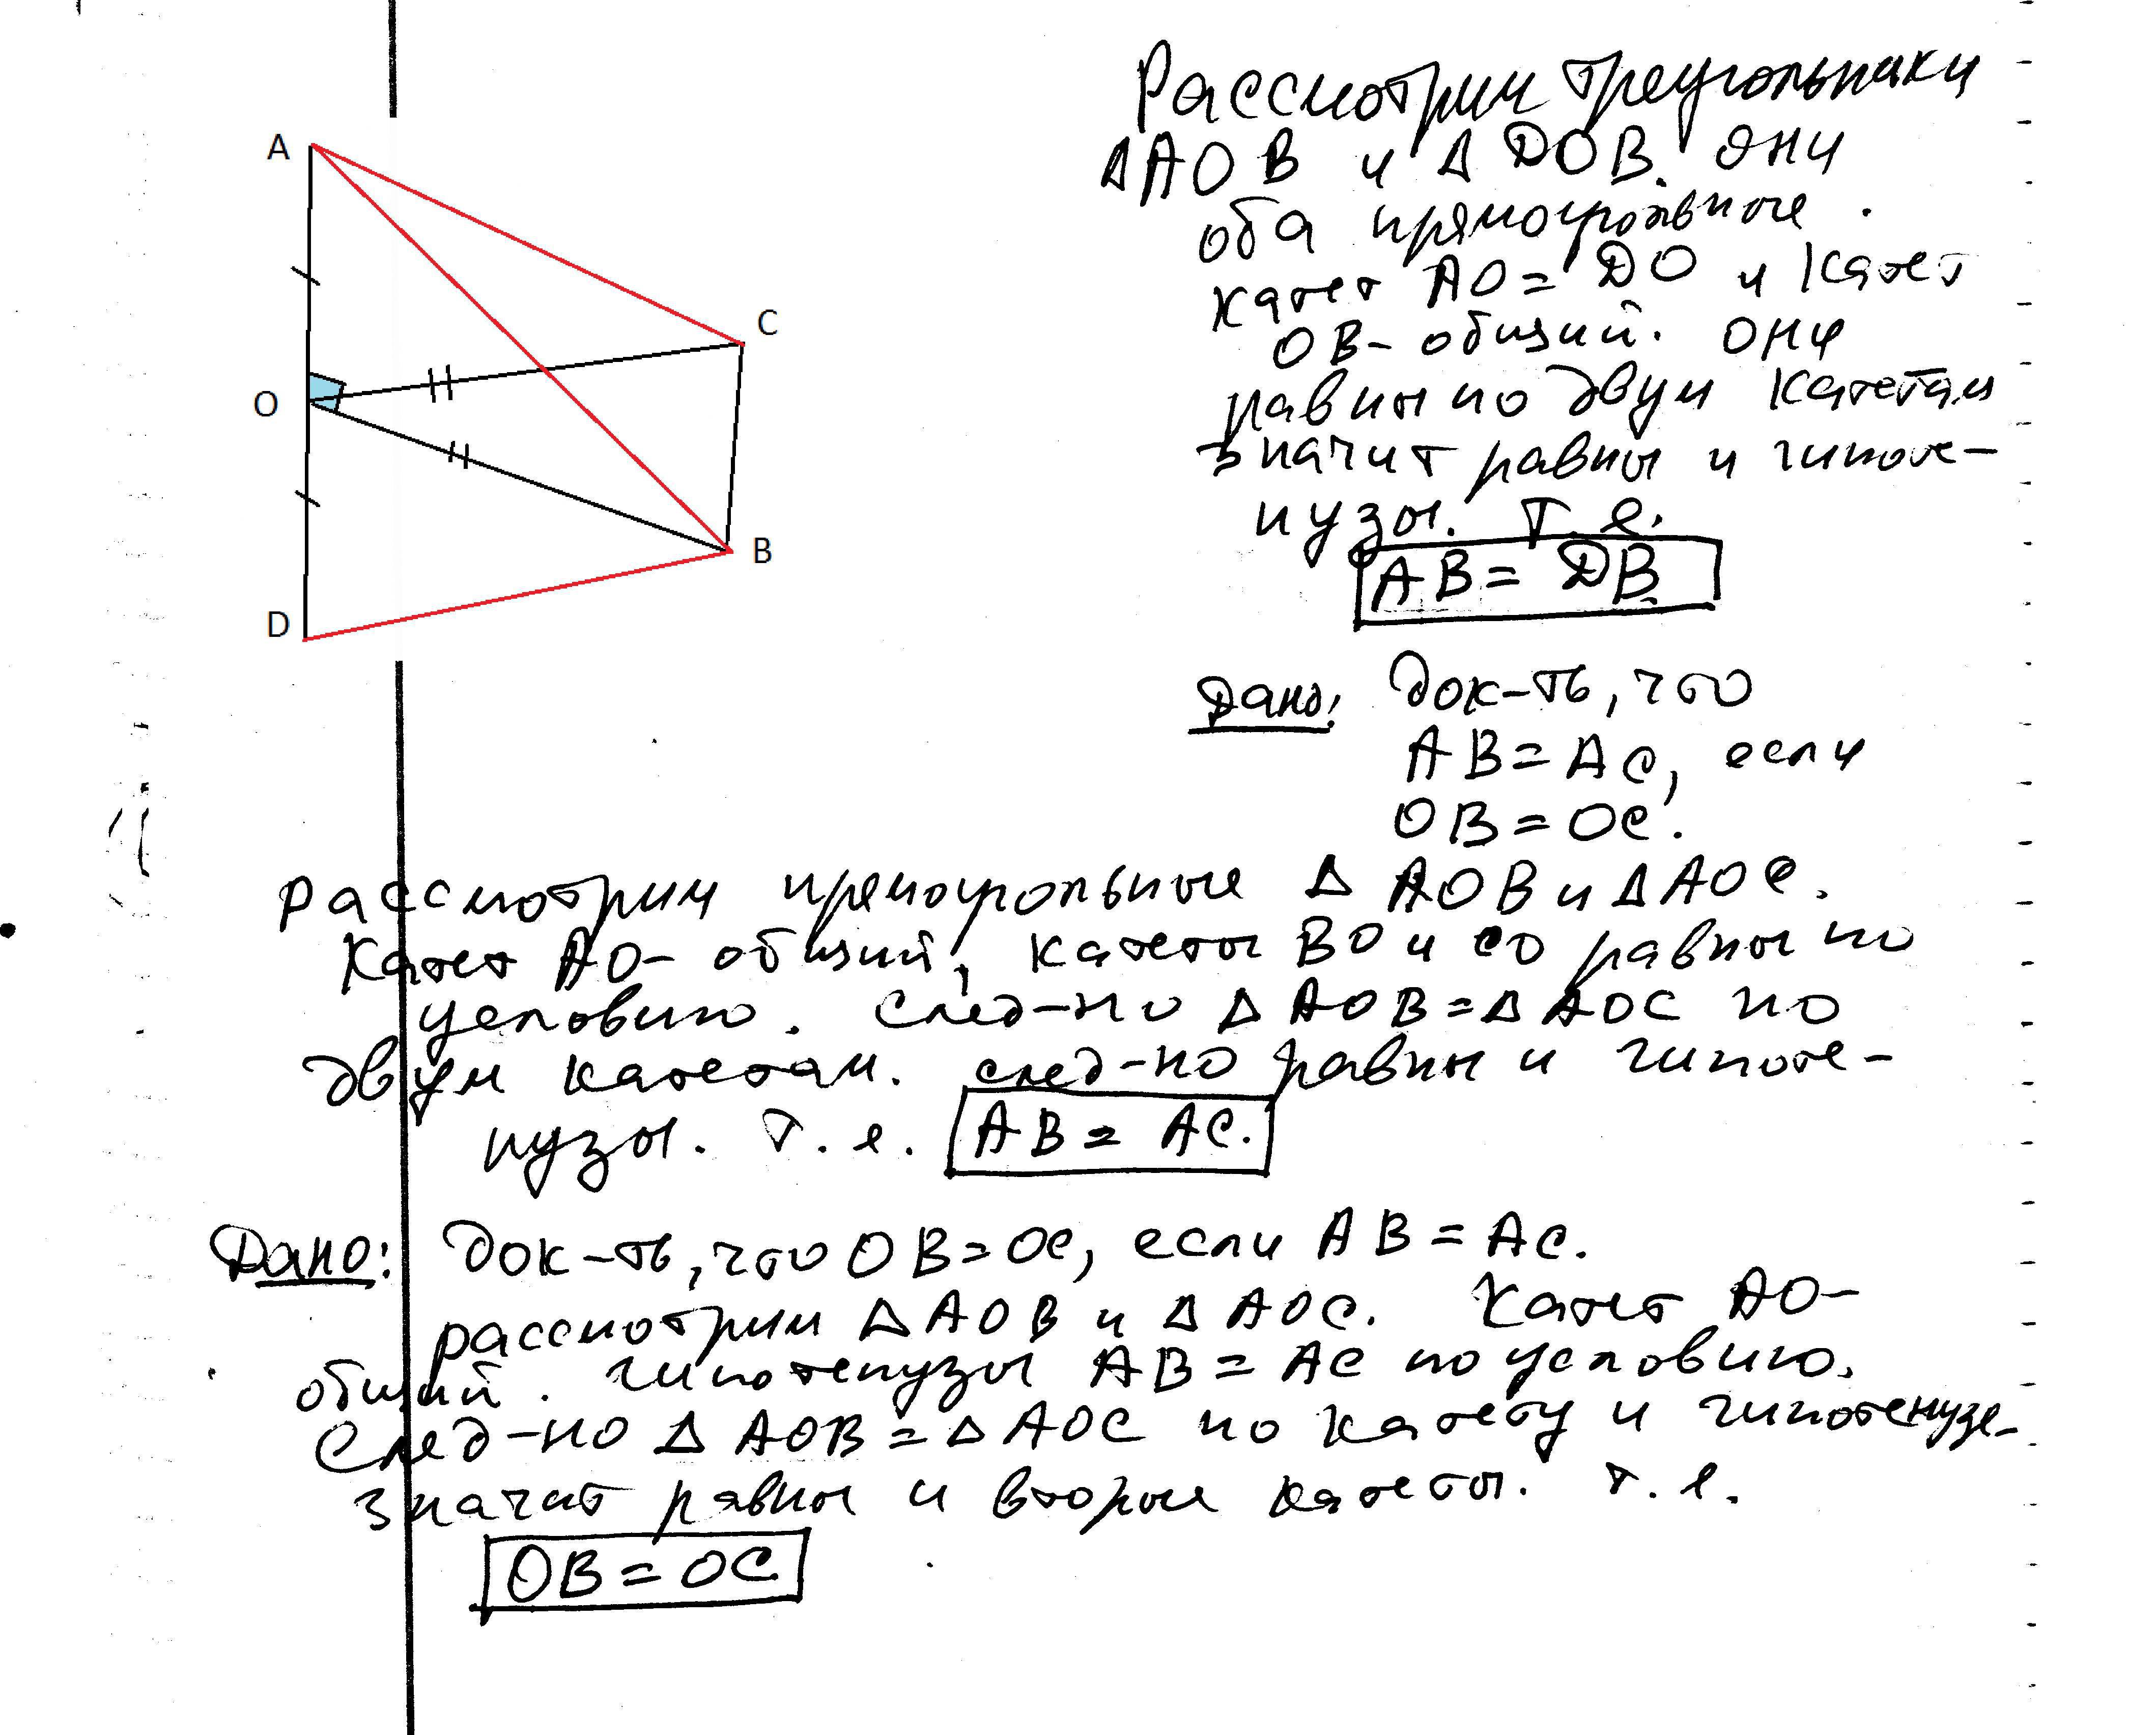 A
C
O
B
D
Рассмотрим треугольники
Δ AOB и Δ DOB. они
оба прямоугольные.
катет AO = DO и катет
OB – общий. они
равны по двум катетам
значит равны и гипоте-
нузы. Т. е.
AB = DB
Дано: док-ть, что
AB = AC, если
OB = OC.
Рассмотрим прямоугольные Δ AOB и Δ AOC.
Катет AO – общий, катеты BO и CO равны по
условию. след-но Δ AOB = Δ AOC по
двум катетам. след-но равны и гипоте-
нузы. т. е. AB = AC.
Дано: док-ть, что OB = OC, если AB = AC.
рассмотрим Δ AOB и Δ AOC. Катет AO –
общий. гипотенузы AB = AC по условию.
След-но Δ AOB = Δ AOC по катету и гипотенузе
значит равны и вторые катеты. т. е.
OB = OC